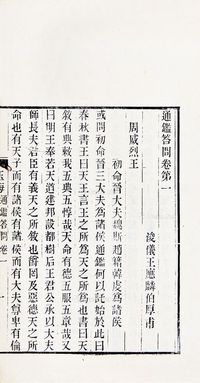 通鑑答問卷第一
浚儀王應麟伯厚甫
周威烈王
初命晉大夫魏斯趙籍韓虔爲諸侯
或問初命晉三大夫爲諸侯通鑑何以託始於此曰
春秋書王曰天王言王之所爲天之所爲也書曰天
敘有典敕我五典五惇哉天命有德五服五章哉又
曰明王奉若天道建邦設都樹后王君公承以大夫
師長夫君臣有義天之所敘也爵罔及惡德天之所
命也有天子而有諸侯有諸侯而有大夫尊卑有倫
玉海 通鑑答問卷一 一